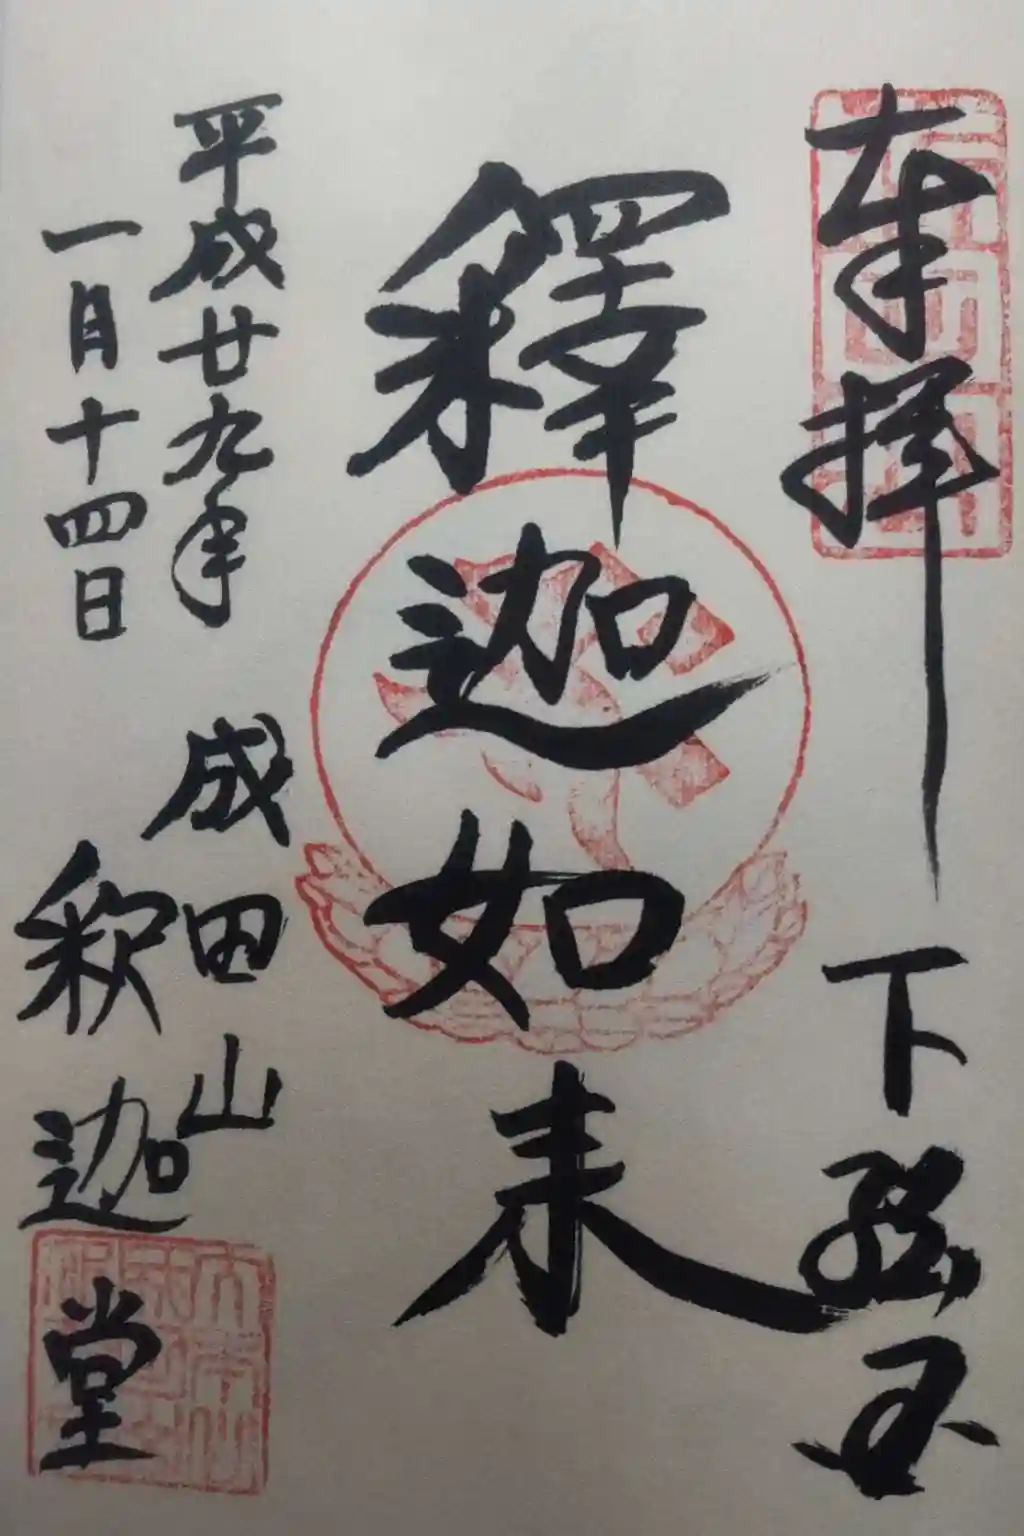 奉拝
下総国
釋迦如来
平成廿九年
一月十四日
成田山
釈迦堂